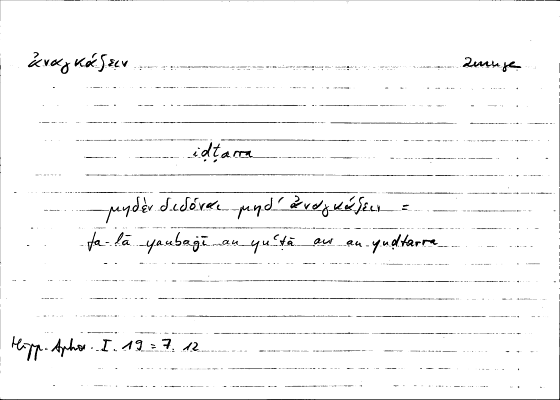 ἀναγκάζειν
zwingen
iḍṭarra
μηδὲν διδόναι μηδ' ἀναγκάζειν =
fa-lā yanbaġī an yuʿṭā au an yuḍṭarra
Hipp. Aphor. I. 19 = 7, 12